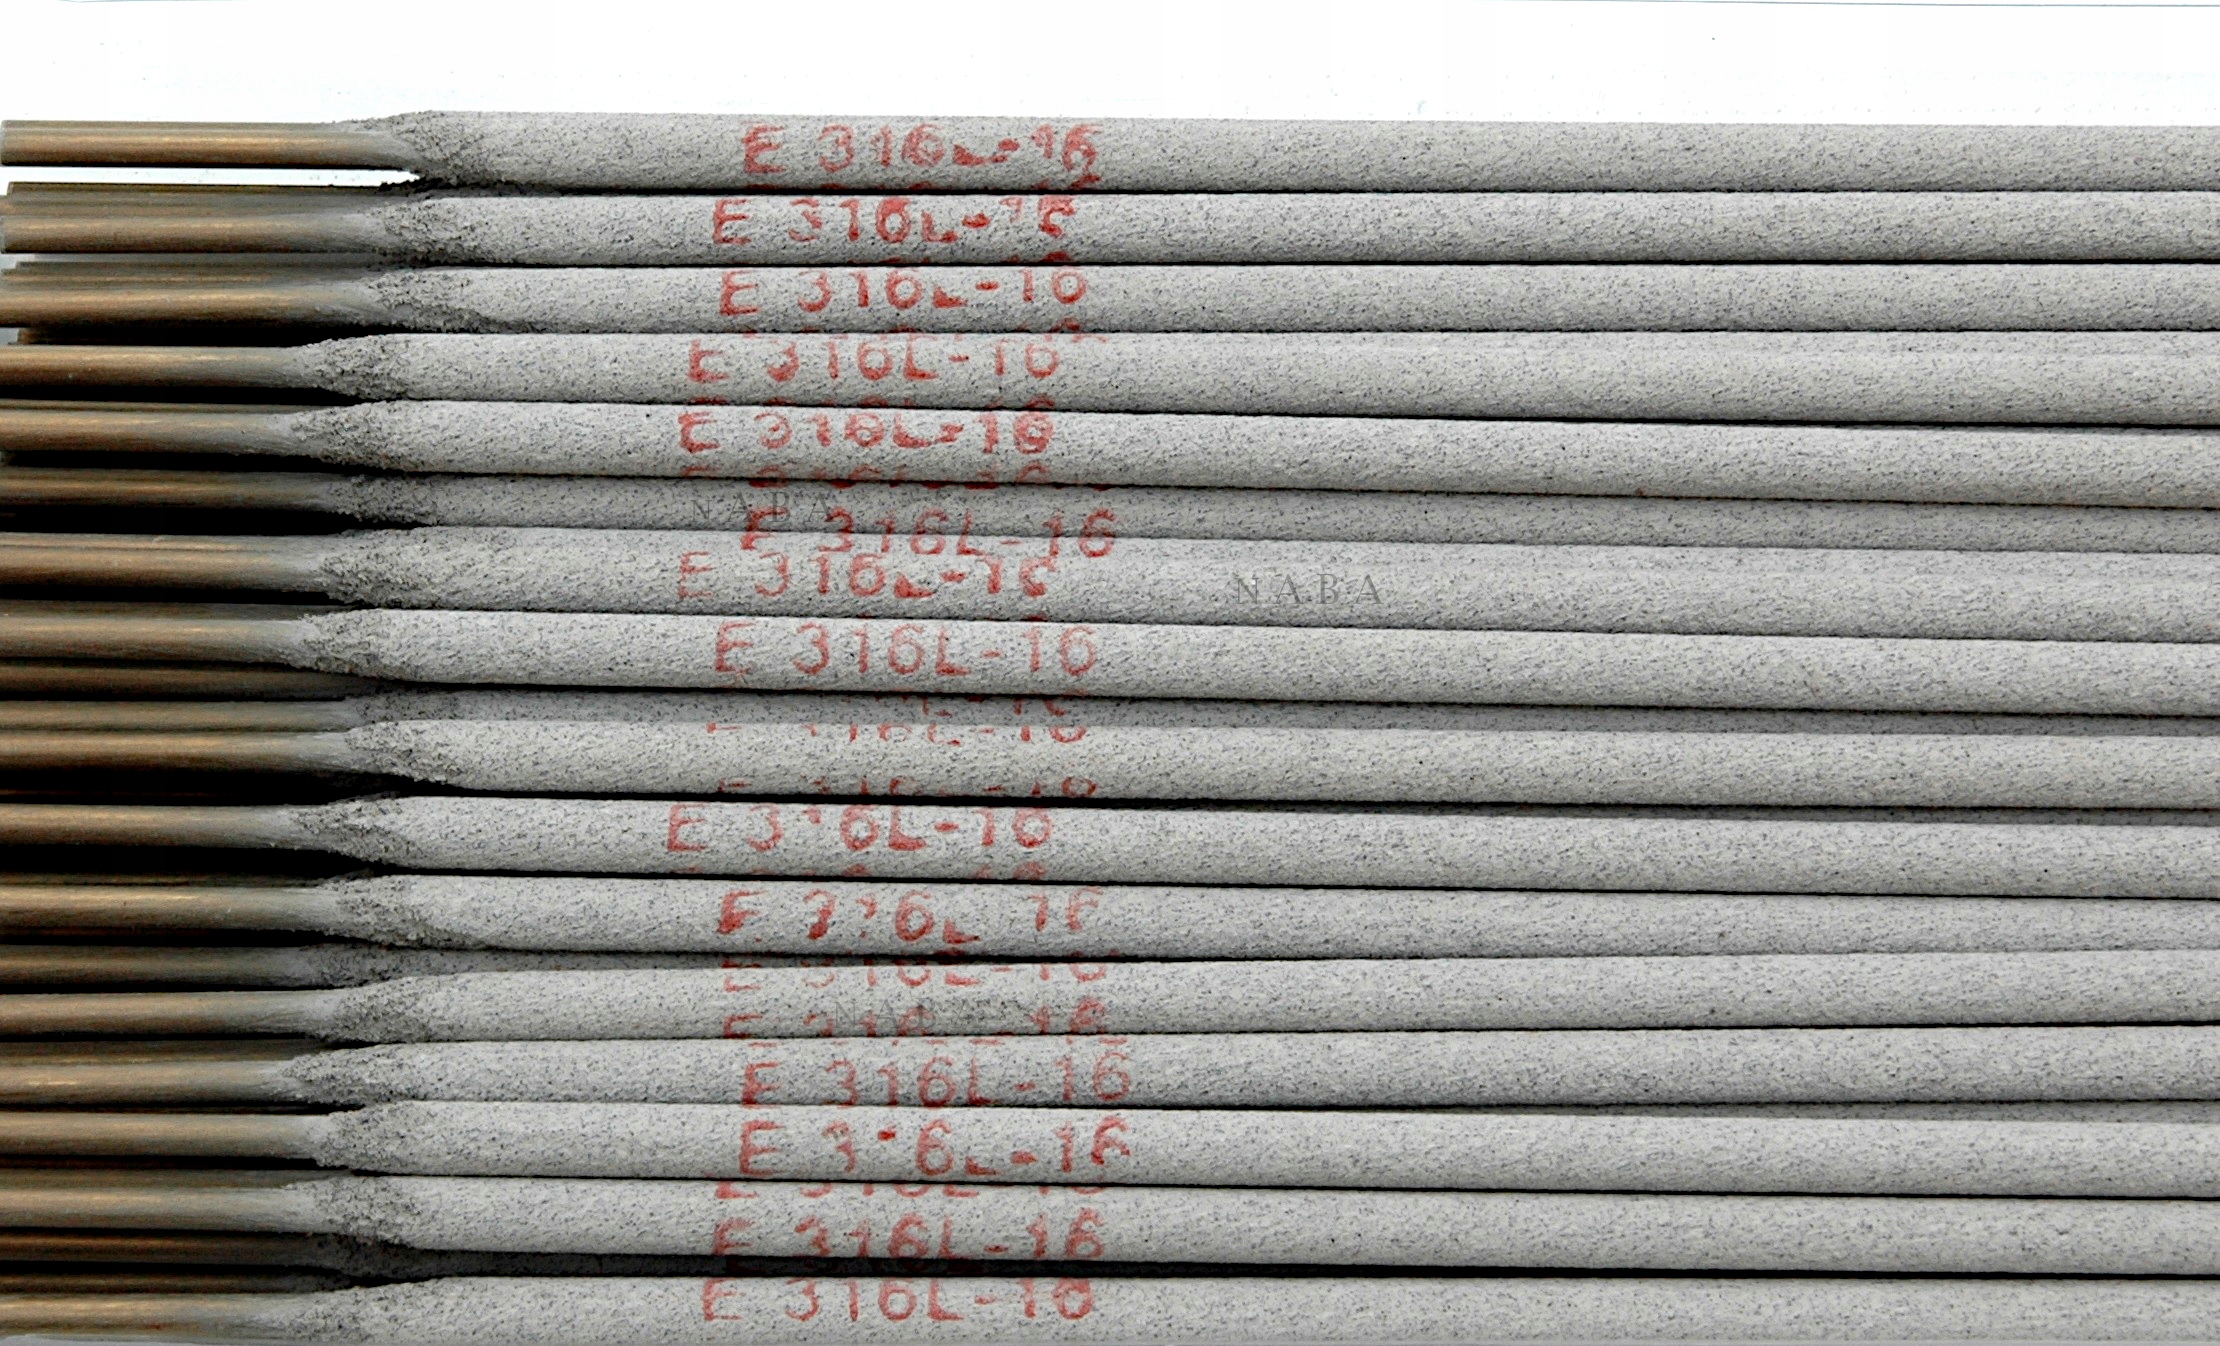 E 316L-16
E 316L-16
E 316L-16
E 316L-16
E 316L-16
NABA
E 316L-16
E 316L-16
NABA
E 316L-16
E 316L-16
E 316L-16
E 316L-16
NABA
E 316L-16
E 316L-16
E 316L-16
E 316L-16